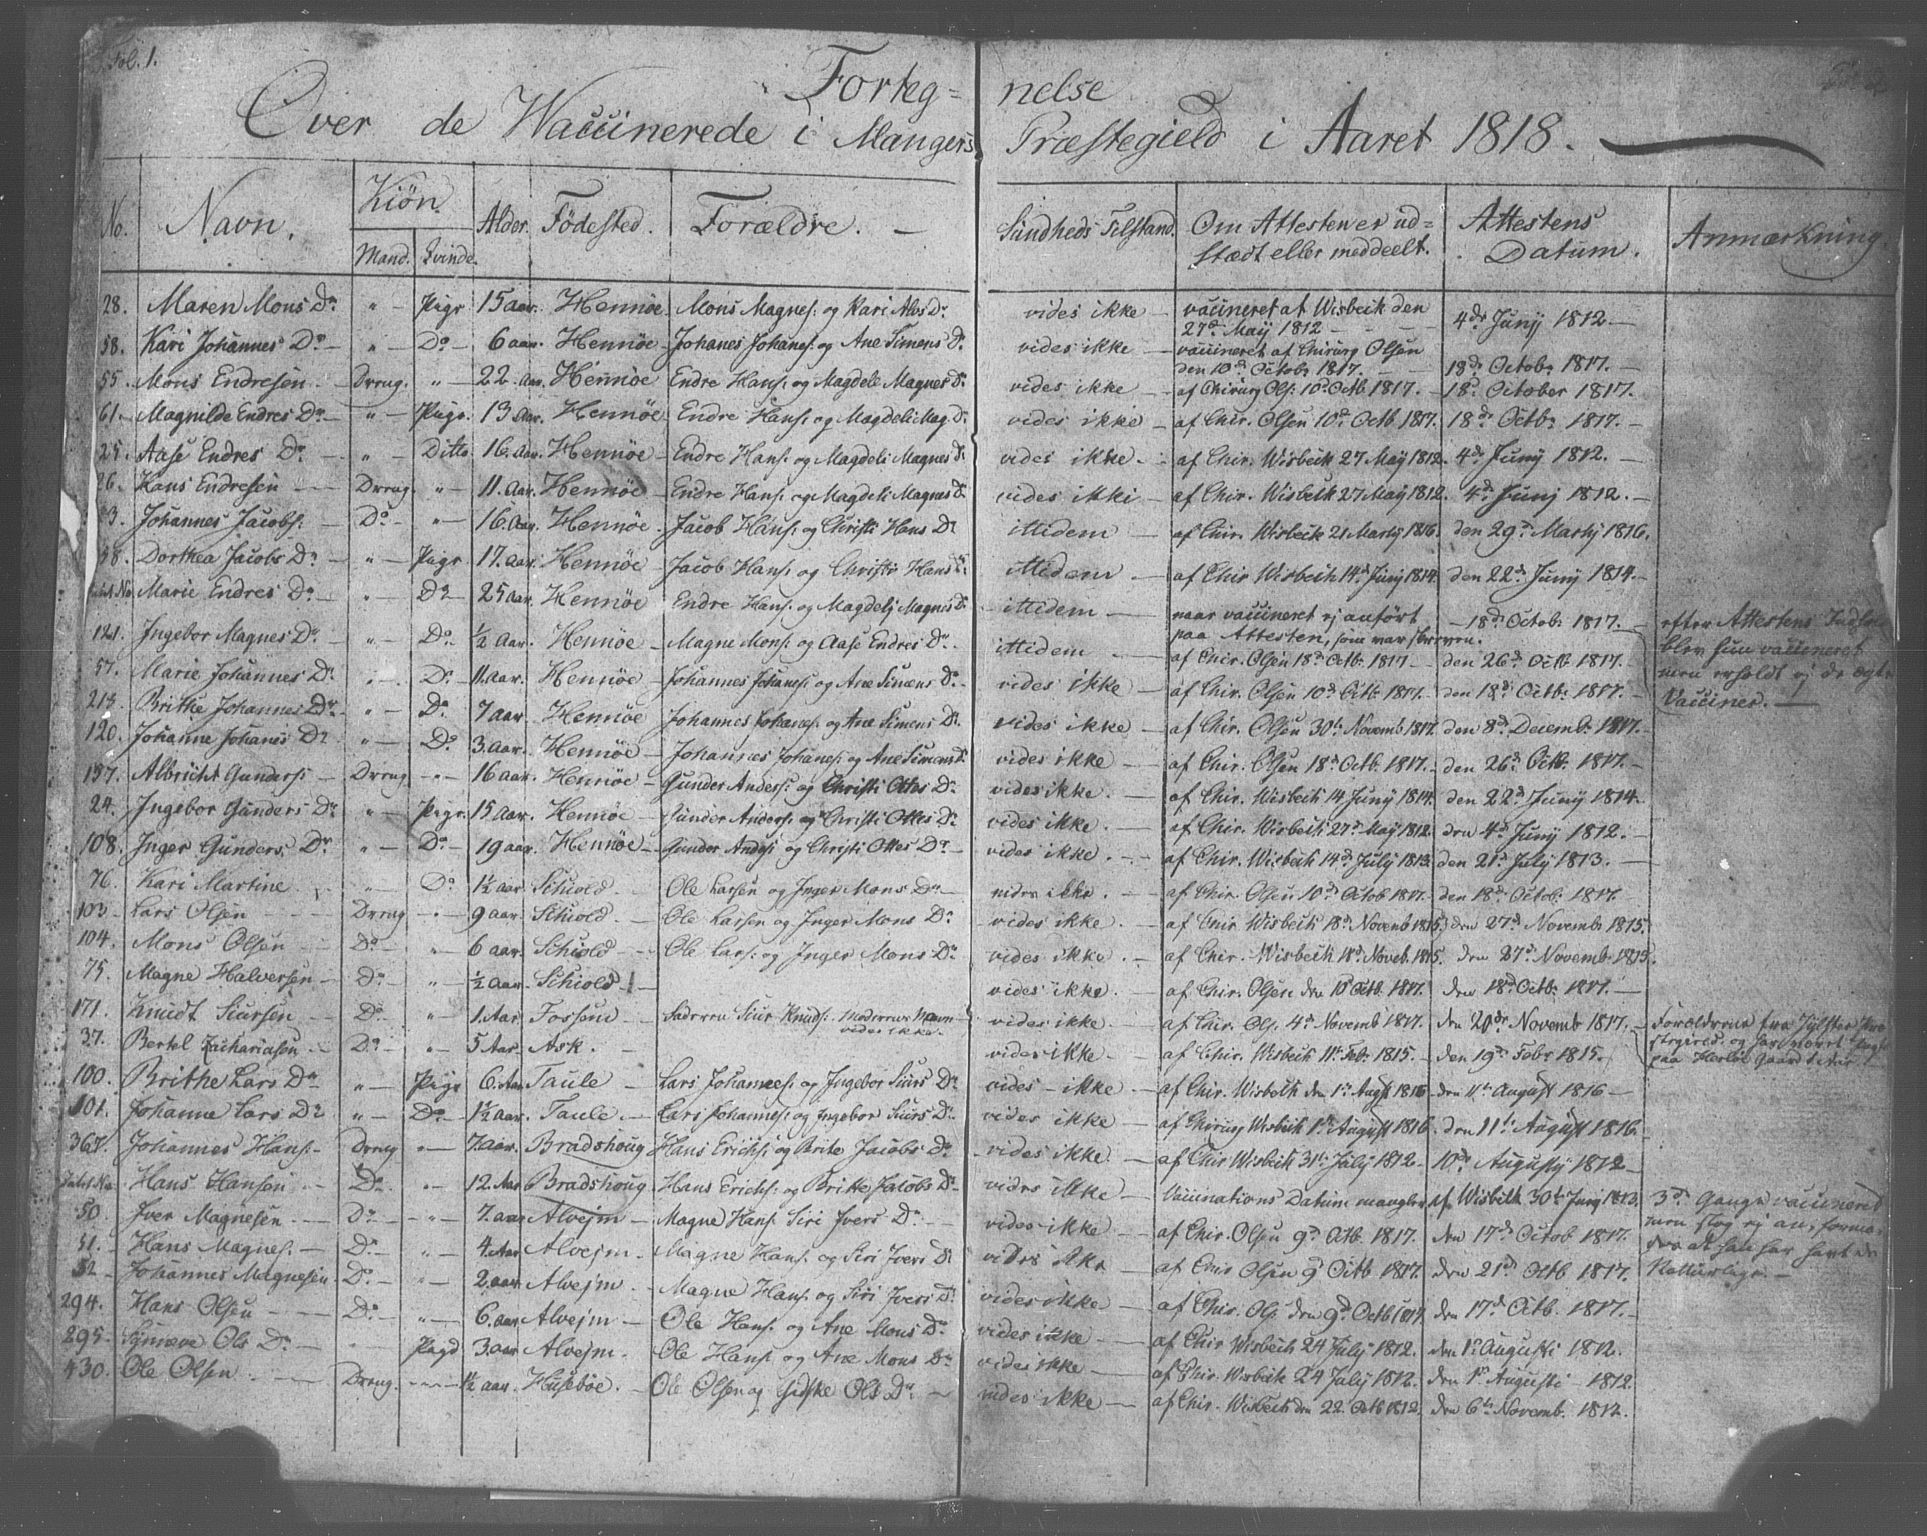 Fol. 1.
Forteg= nelse
Over de Waccinerede i Mangers Præstegield i Aaret 1818.
No. Navn. Kiøn. Alder. Födested. Forældre. Sundheds Tilstand. Om Attesten er ud= Attestens Anmærkning.
Mand. Qvinde. stædt eller meddeelt. Datum.
28. Maren Mons Dr. " Pige 15 aar. Hennöe Mons Magnes: og Kari Nels Dr. vides ikke vaccineret af Wisbeck den 27de Maÿ 1812 4de Junÿ 1812
58. Kari Johannes Dr. " Do 6 aar. Hennöe Johanes Johanes: og Ane Simens Dr. vides ikke vaccineret af Chirurg Olsen den 10d Octobr 1817. 18d Octobr 1817.
55. Mons Endresen Dreng. " 22. aar. Hennöe Endre Hans: og Magdeli Magnes Dr. vides ikke af Chirurg Ols: 10d Octb 1817. 18d October 1817.
61. Magnilde Endres Dr. " Pige. 13 aar. Hennöe Endre Hans: og Magdeli Mag. Dr. vides ikke af Chir. Olsen 10d Octb 1817. 18d Octbr 1817.
25. Aase Endres Dr. " Ditto 16. aar. Hennöe Endre Hans: og Magdeli Magnes Dr. vides ikke af Chir. Wisbeck 27 Maÿ 1812. 4de Junÿ 1812.
26. Hans Endresen Dreng. " 11. aar. Hennöe Endre Hans: og Magdeli Magnes Dr. vides ikke af Chir. Wisbeck 27 Maÿ 1812. 4d Junj 1812.
Johannes Jacobs: Do " 16. aar. Hennöe Jacob Hans: og Christi Hans Dr ittidem af Chir. Wisbeck 21 Martÿ 1816. den 29d Martÿ 1816.
58. Dorthea Jacobs Dr " Pige 17. aar. Hennöe Jacob Hans: og Christi Hans Dr. ittidem af Chir Wisbech 14d Junÿ 1814. den 22d Junÿ 1814.
Marie Endres Dr. " Do 25 aar. Hennöe Endre Hans: og Magdelj Magnes Dr. ittidem naar vaccineret ej anfört paa Attesten, som var skreven. 18d Octobr 1817. efter Attestens
121. Ingebor Magnes Dr. " Do. ½ Aar. Hennöe Magne Mons: og Aase Endres Dr. ittidem af Chir. Olsen 18d Octbr 1817 den 26d Octb 1817. blev hun vaccineret
57. Marie Johannes Dr. " Do. 11. aar. Hennöe Johannes Johanes: og Ane Simens Dr. vides ikke af Chir. Olsen 10d Octbr 1817. den 18d Octbr 1817. men erholdt ej de ægte
213. Brithe Johannes Dr. " Do. 7 aar Hennöe Johannes Johanes: og Ane Simens Dr. vides ikke af Chir. Olsen 30te Novemb 1817. den 8d Decembr 1817. Vacciner.
120. Johanne Johanes Dr " Do. 3. aar. Hennöe Johannes Johanes: og Ane Simens Dr vides ikke af Chir. Olsen 18d Octb. 1817. den 26d Octb. 1817.
137. Albricht Gunders: Dreng " 16 aar. Hennöe Gunder Anders: og Christi Ottes Dr. vides ikke. af Chir. Wisbech 14 Junÿ 1814. den 22d Junÿ 1814.
24. Ingebor Gunders Dr " Pige. 15 aar. Hennöe Gunder Anders: og Christi Ottes Dr vides ikke. af Chir. Wisbech 27d Maÿ 1812. den 4d Junÿ 1812.
108. Inger Gunders. Dr " Do. 19 aar. Hennöe Gunder Anders: og Christi Ottes Dr. vides ikke. af Chir. Wisbech 14d Julÿ 1813. den 21d Julÿ 1813.
76. Kari Martine " Do. 1½ aar Schiold Ole Larsen og Inger Mons Dr. vides ikke. af Chir. Olsen 10d Octob 1817. den 18d Octobr 1817.
103. Lars Olsen Dreng " 9 aar. Schiold Ole Larsen og Inger Mons Dr. vides ikke. af Chir Wisbech 18d Novemb 1815. den 27d Novemb 1815.
104. Mons Olsen Do " 6 aar. Schiold Ole Lars: og Inger Mons Dr vides ikke. af Chir. Wisbech 18d Noveb. 1815. den 27d Novemb 1815.
75. Magne Halversen Do. " ½ aar. Schiold vides ikke. af Chir. Olsen den 10 Octb. 1817. den 18d Octbr 1817.
171. Knudt Siursen Do. " 1. Aar Fossem Faderen Siur Knuds: Moderens Navn vides ikke. vides ikke af Chir. Ols. 4d Novemb 1817. den 20de Novemb 1817. Forældrene fra
37. Bertel Zachariasen Do " 5 Aar. Ask. vides ikke af Chir. Wisbech 11te Feb. 1815. den 19d Febr 1815. og har
100. Brithe Lars Dr " Pige 6. Aar Taule Lars Johannes: og Ingebor Siurs Dr vides ikke af Chir. Wisbech den 1ste Augst 1816 den 11te August 1816 paa
101. Johanne Lars Dr " Do. 1½ aar. Taule Lars Johannes: og Ingebor Siurs Dr. vides ikke af Chirurg Wisbech 1ste August 1816. den 11te August 1816.
367. Johannes Hans: Dreng " 7. aar. Bradshoug Hans Erichs: og Brite Jacobs Dr. vides ikke. af Chir Wisbech 31te Julÿ 1812. 10de Augustÿ 1812
Hans Hansen Do. " 12. Aar Bradshoug Hans Erichs: og Britte Jacobs Dr. vides ikke Vaccinations Datum mangler af Wisbech 30te Junj 3d Gange vaccinered
50. Iver Magnesen Do. " 7. aar Alvejm Magne Hans: Siri Ivers Dr. vides ikke af Chir. Olsen 9d Octb. 1817. den 17d Octob 1817. men slog ej an,
51. Hans Magnes: Do. " 4. Aar Alvejm. Magne Hans: og Siri Ivers Dr vides ikke af Chir Olsen 9d Octb 1817. den 21d Octb 1817. at han har havt de
52 Johannes Magnesen Do. " 2. aar Alvejm. Magne Hans: og Siri Ivers Dr. vides ikke af Chir. Ols. den 9d Octb 1817. den 17d Octb. 1817. Naturlige.
294. Hans Olsen Do. " 6. aar Alvejm Ole Hans: og Ane Mons Dr. vides ikke af Chir Wisbech 24 Julÿ 1812. den 1ste Augusti 1812.
295. Synneve Ols Dr. " Pige 3. aar Alvejm. Ole Hans: og Ane Mons Dr. vides ikke af Chir Wisbech 24 Julÿ 1812. den 1ste Augusti 1812.
430. Ole Olsen Dreng. 1½ aar. Husebøe. Ole Olsen og Gidske Ols Dr vides ikke af Chir. Wisbech den 22 Octb 1812. den 6te Novemb. 1812.